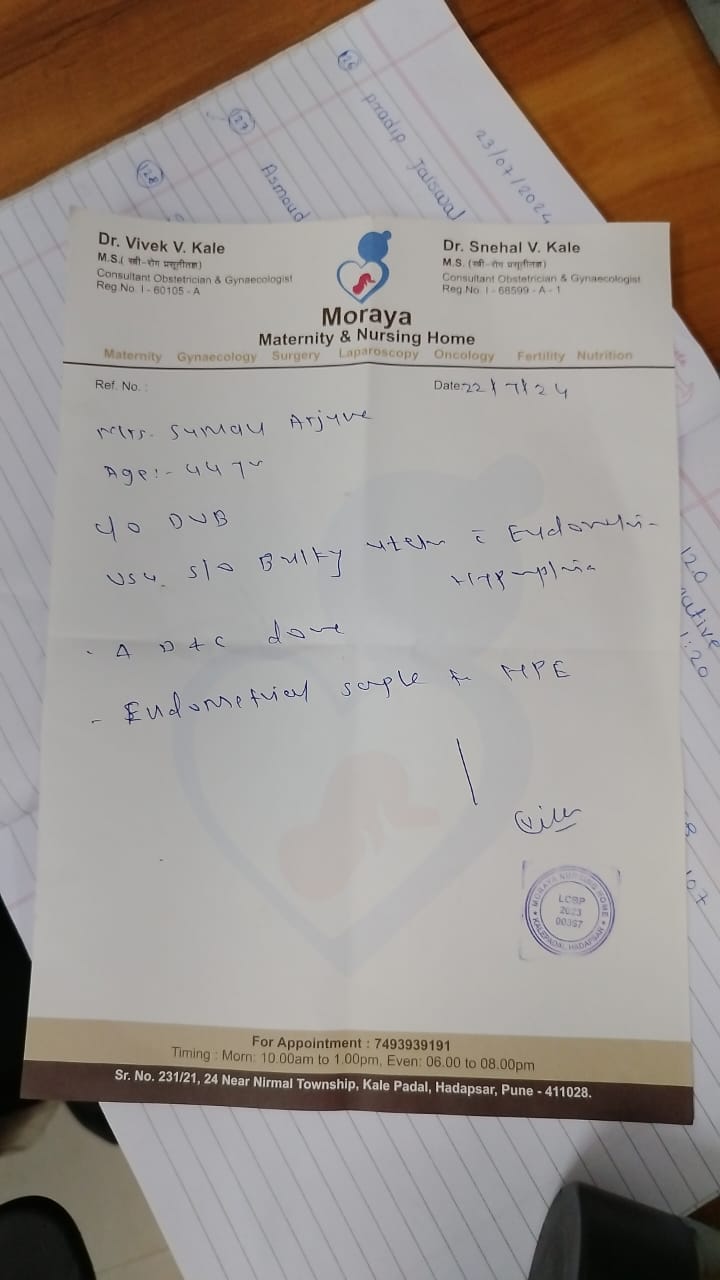 126
pradip Jaiswal
23/07/2024
127
Asmaud
128
Dr. Vivek V. Kale
M.S.( स्त्री-रोग प्रसूतीतज्ञ)
Consultant Obstetrician & Gynaecologist
Reg.No. I - 60105 - A
Dr. Snehal V. Kale
M.S. (स्त्री-रोग प्रसूतीतज्ञ)
Consultant Obstetrician & Gynaecologist
Reg.No. I - 68599 - A - 1
Moraya
Maternity & Nursing Home
Maternity Gynaecology Surgery Laparoscopy Oncology Fertility Nutrition
Ref. No. :
Date: 22/7/24
Mrs. Suman
Age:- 44 yr
c/o DUB
USG s/o Bulky uterus c̄ Endometrial
Hyperplasia
- A D+C done
- Endometrial sample for HPE
MORAYA NURSING HOME
LCBP
2023
00357
KALEPADAL HADAPSAR
For Appointment : 7493939191
Timing : Morn: 10.00am to 1.00pm, Even: 06.00 to 08.00pm
Sr. No. 231/21, 24 Near Nirmal Township, Kale Padal, Hadapsar, Pune - 411028.
120
1:20
107